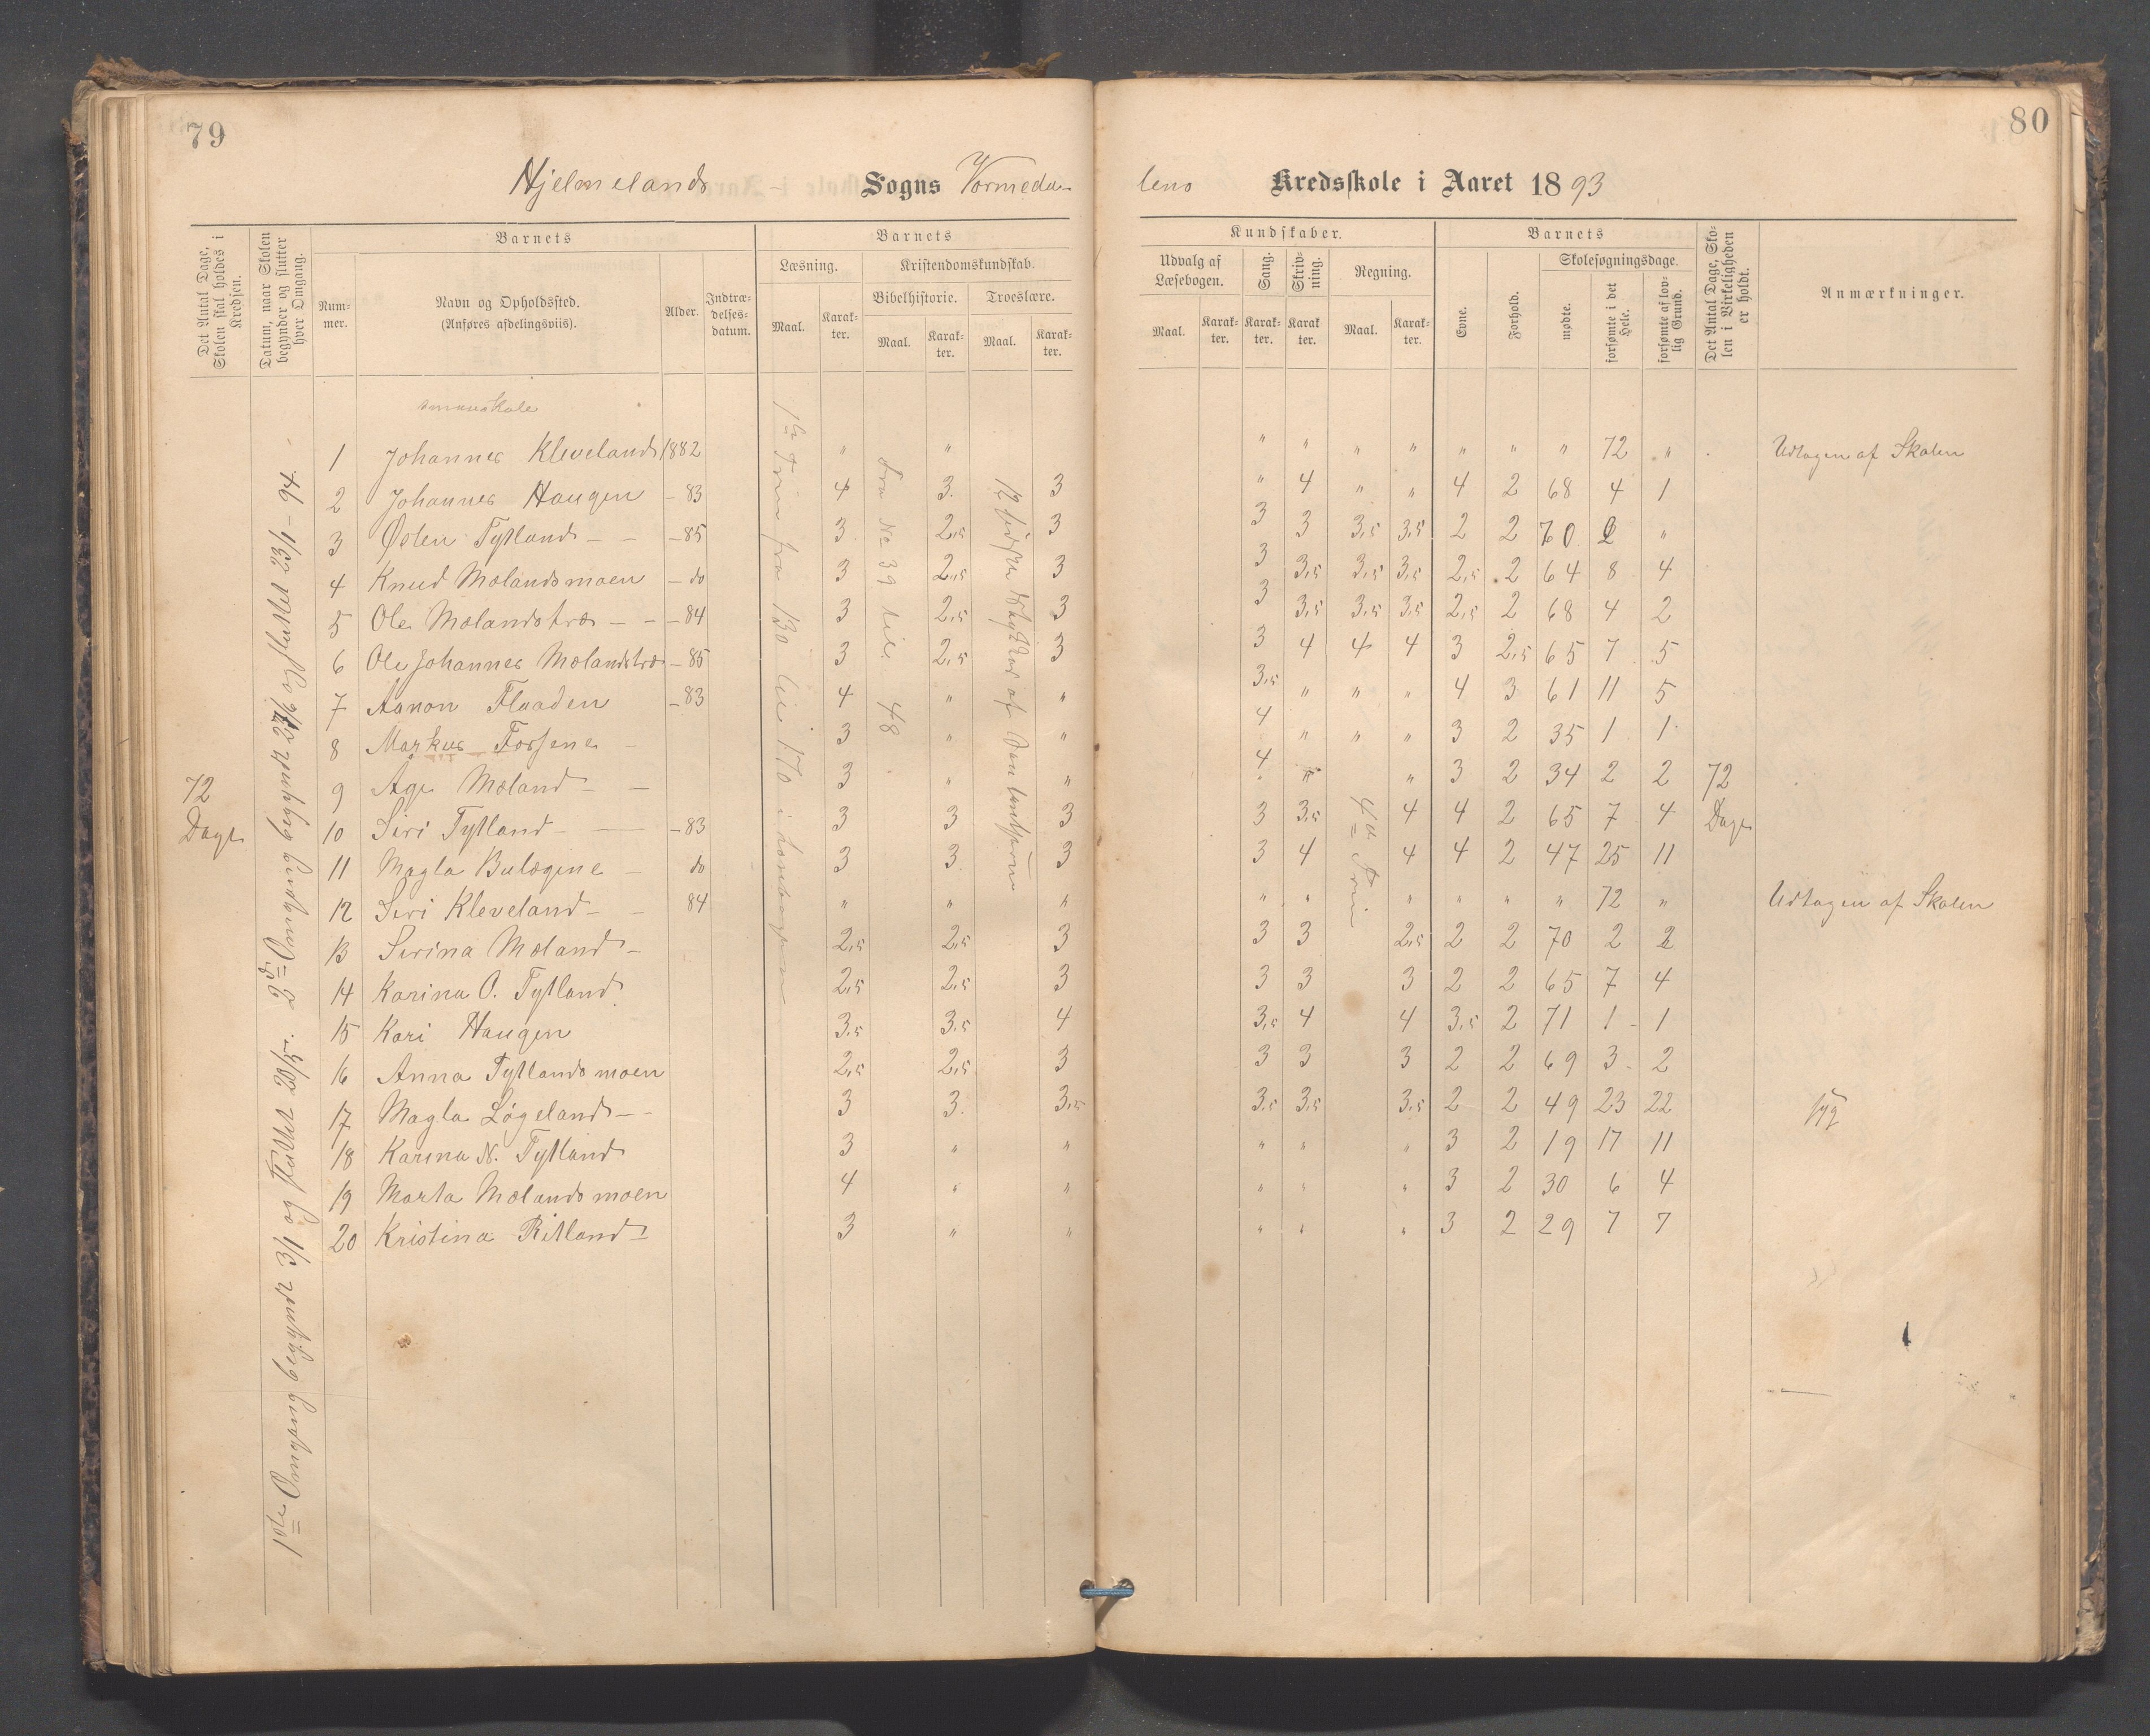 79
Hjelmelands Sogns Vormeda-
Det Antal Dage, Skolen skal holdes i Kredsen.
Datum, naar Skolen begynder og slutter hver Omgang.
Barnets
Nummer.
Navn og Opholdssted.
(Anføres afdelingsviis).
Alder.
Indtrædelsesdatum.
Barnets
Læsning.
Maal.
Karakter.
Kristendomskundskab.
Bibelhistorie.
Maal.
Karakter.
Troeslære.
Maal.
Karakter.
72
Dage
1ste Omgang begyndt 3/1 og sluttet 20/5. 2d Omgang begyndt 27/6 og sluttet 23/1 - 94.
Fra No 39 til 48
smaaskole
1 Johannes Kleveland 1882 " "
2 Johannes Haugen - 83 4 3. 3
3 Østen Tytland - - - 85 3 2,5 3
4 Knud Mælandsmoen - do 3 2,5 3
5 Ole Mælandstræ - - - 84 3 2,5 3
6 Ole Johannes Mælandstræ - 85 3 2,5 3
7 Aanon Flaaden - 83 4 " "
8 Markus Forsene - 3 " "
9 Age Mæland - - 3 " "
10 Siri Tytland - - - 83 3 3 3
11 Magla Bulægene - do 3 3 3
12 Siri Kleveland - - 84 " " "
13 Serina Mæland - 2,5 2,5 3
14 Karina O. Tytland 2,5 2,5 3
15 Kari Haugen 3,5 3,5 4
16 Anna Tytlandsmoen 2,5 2,5 3
17 Magla Løgeland - - 3 3. 3,5
18 Karina N. Tytland 3 " "
19 Marta Mælandsmoen 4 " "
20 Kristina Ritland 3 " "
80
lens Kredsskole i Aaret 1893
Kundskaber.
Udvalg af Læsebogen.
Maal.
Karakter.
Sang.
Karakter.
Skrivning.
Karakter.
Regning.
Maal.
Karakter.
Barnets
Evne.
Forhold.
Skolesøgningsdage.
mødte.
forsømte i det Hele.
forsømte af lovlig Grund.
Det Antal Dage, Skolen i Virkeligheden er holdt.
Anmærkninger.
" " " " " " " 72 " Udtagen af Skolen
" 4 " " 4 2 68 4 1
3 3 3,5 3,5 2 2 70 2 "
3 3,5 3,5 3,5 2,5 2 64 8 4
3 3,5 3,5 3,5 2,5 2 68 4 2
3 4 4 4 3 2,5 65 7 5
3,5 " " " 4 3 61 11 5
4 " " " 3 2 35 1 1
4 " " 3 2 34 2 2 72
3 3,5 4 4 2 65 7 4 Dage
3 4 4 4 2 47 25 11
" " " " " " 72 " Udtagen af Skolen
3 3 2,5 2 2 70 2 2
3 3 3 2 2 65 7 4
3,5 4 4 3,5 2 71 1 1
3 3 3 2 2 69 3 2
3,5 3,5 3,5 2 2 49 23 22 syg
" " " 3 2 19 17 11
" " " 3 2 30 6 4
" " " 3 2 29 7 7